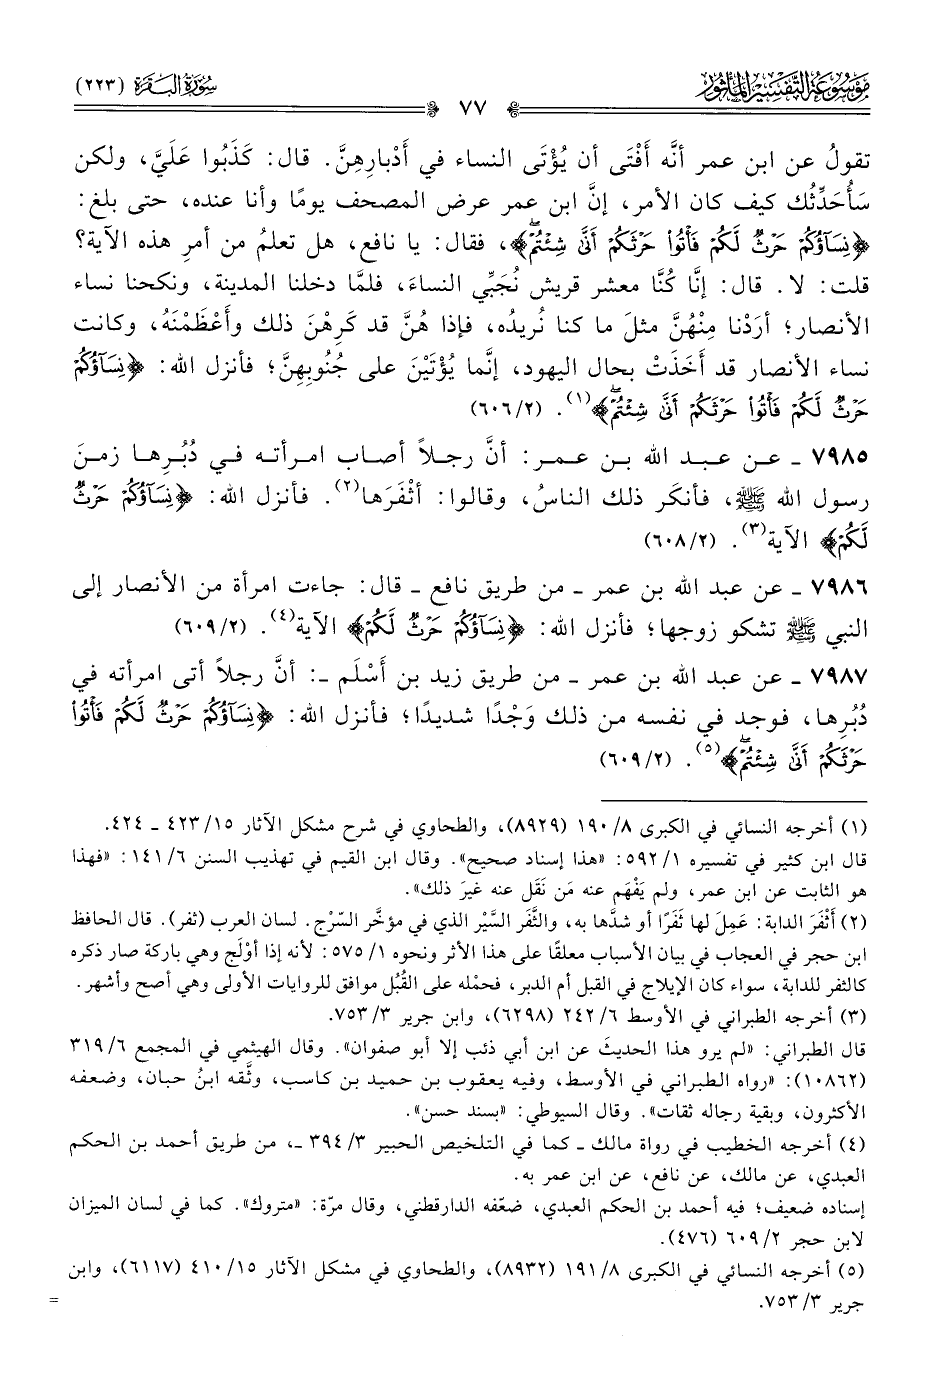 موسوعة التفسير المأثور
سورة البقرة (٢٢٣)
٧٧
تقولُ عن ابن عمر أنَّه أَفْتَى أن يُؤْتَى النساء في أَدْبارِهِنَّ. قال: كَذَبُوا عَلَيَّ، ولكن
سَأُحَدِّثُك كيف كان الأمر، إنَّ ابن عمر عرض المصحف يومًا وأنا عنده، حتى بلغ:
﴿نِسَآؤُكُمْ حَرْثٌ لَّكُمْ فَأْتُوا۟ حَرْثَكُمْ أَنَّىٰ شِئْتُمْ﴾، فقال: يا نافع، هل تعلمُ من أمرِ هذه الآية؟
قلت: لا. قال: إنَّا كُنَّا معشر قريش نُجَبِّي النساءَ، فلمَّا دخلنا المدينة، ونكحنا نساء
الأنصار؛ أرَدْنا مِنْهُنَّ مثلَ ما كنا نُريدُه، فإذا هُنَّ قد كَرِهْنَ ذلك وأَعْظَمْنَهُ، وكانت
نساء الأنصار قد أَخَذَتْ بحال اليهود، إنَّما يُؤْتَيْنَ على جُنُوبِهِنَّ؛ فأنزل الله: ﴿نِسَآؤُكُمْ
حَرْثٌ لَّكُمْ فَأْتُوا۟ حَرْثَكُمْ أَنَّىٰ شِئْتُمْ﴾(١). (٢/٦٠٦)
٧٩٨٥ ـ عن عبد الله بن عمر: أنَّ رجلاً أصاب امرأته في دُبُرِها زمنَ
رسول الله ﷺ، فأنكَر ذلك الناسُ، وقالوا: أثْفَرَها(٢). فأنزل الله: ﴿نِسَآؤُكُمْ حَرْثٌ
لَّكُمْ﴾ الآية(٣). (٢/٦٠٨)
٧٩٨٦ ـ عن عبد الله بن عمر ـ من طريق نافع ـ قال: جاءت امرأة من الأنصار إلى
النبي ﷺ تشكو زوجها؛ فأنزل الله: ﴿نِسَآؤُكُمْ حَرْثٌ لَّكُمْ﴾ الآية(٤). (٢/٦٠٩)
٧٩٨٧ ـ عن عبد الله بن عمر ـ من طريق زيد بن أَسْلَم ـ: أنَّ رجلاً أتى امرأته في
دُبُرِها، فوجد في نفسه من ذلك وَجْدًا شديدًا؛ فأنزل الله: ﴿نِسَآؤُكُمْ حَرْثٌ لَّكُمْ فَأْتُوا۟
حَرْثَكُمْ أَنَّىٰ شِئْتُمْ﴾(٥). (٢/٦٠٩)
(١) أخرجه النسائي في الكبرى ٨/ ١٩٠ (٨٩٢٩)، والطحاوي في شرح مشكل الآثار ١٥/ ٤٢٣ ـ ٤٢٤.
قال ابن كثير في تفسيره ١/ ٥٩٢: «هذا إسناد صحيح». وقال ابن القيم في تهذيب السنن ٦/ ١٤١: «فهذا
هو الثابت عن ابن عمر، ولم يَفْهَم عنه مَن نَقَل عنه غيرَ ذلك».
(٢) أَثْفَرَ الدابة: عَمِلَ لها ثَفَرًا أو شدَّها به، والثَّفَر السَّيْر الذي في مؤخَّر السّرْج. لسان العرب (ثفر). قال الحافظ
ابن حجر في العجاب في بيان الأسباب معلقًا على هذا الأثر ونحوه ١/ ٥٧٥: لأنه إذا أوْلَج وهي باركة صار ذكره
كالثفر للدابة، سواء كان الإيلاج في القبل أم الدبر، فحمْله على القُبُل موافق للروايات الأولى وهي أصح وأشهر.
(٣) أخرجه الطبراني في الأوسط ٦/ ٢٤٢ (٦٢٩٨)، وابن جرير ٣/ ٧٥٣.
قال الطبراني: «لم يرو هذا الحديثَ عن ابن أبي ذئب إلا أبو صفوان». وقال الهيثمي في المجمع ٦/ ٣١٩
(١٠٨٦٢): «رواه الطبراني في الأوسط، وفيه يعقوب بن حميد بن كاسب، وثَّقه ابنُ حبان، وضعفه
الأكثرون، وبقية رجاله ثقات». وقال السيوطي: «بسند حسن».
(٤) أخرجه الخطيب في رواة مالك ـ كما في التلخيص الحبير ٣/ ٣٩٤ ـ، من طريق أحمد بن الحكم
العبدي، عن مالك، عن نافع، عن ابن عمر به.
إسناده ضعيف؛ فيه أحمد بن الحكم العبدي، ضعّفه الدارقطني، وقال مرّة: «متروك». كما في لسان الميزان
لابن حجر ٢/ ٦٠٩ (٤٧٦).
(٥) أخرجه النسائي في الكبرى ٨/ ١٩١ (٨٩٣٢)، والطحاوي في مشكل الآثار ١٥/ ٤١٠ (٦١١٧)، وابن
جرير ٣/ ٧٥٣.
=